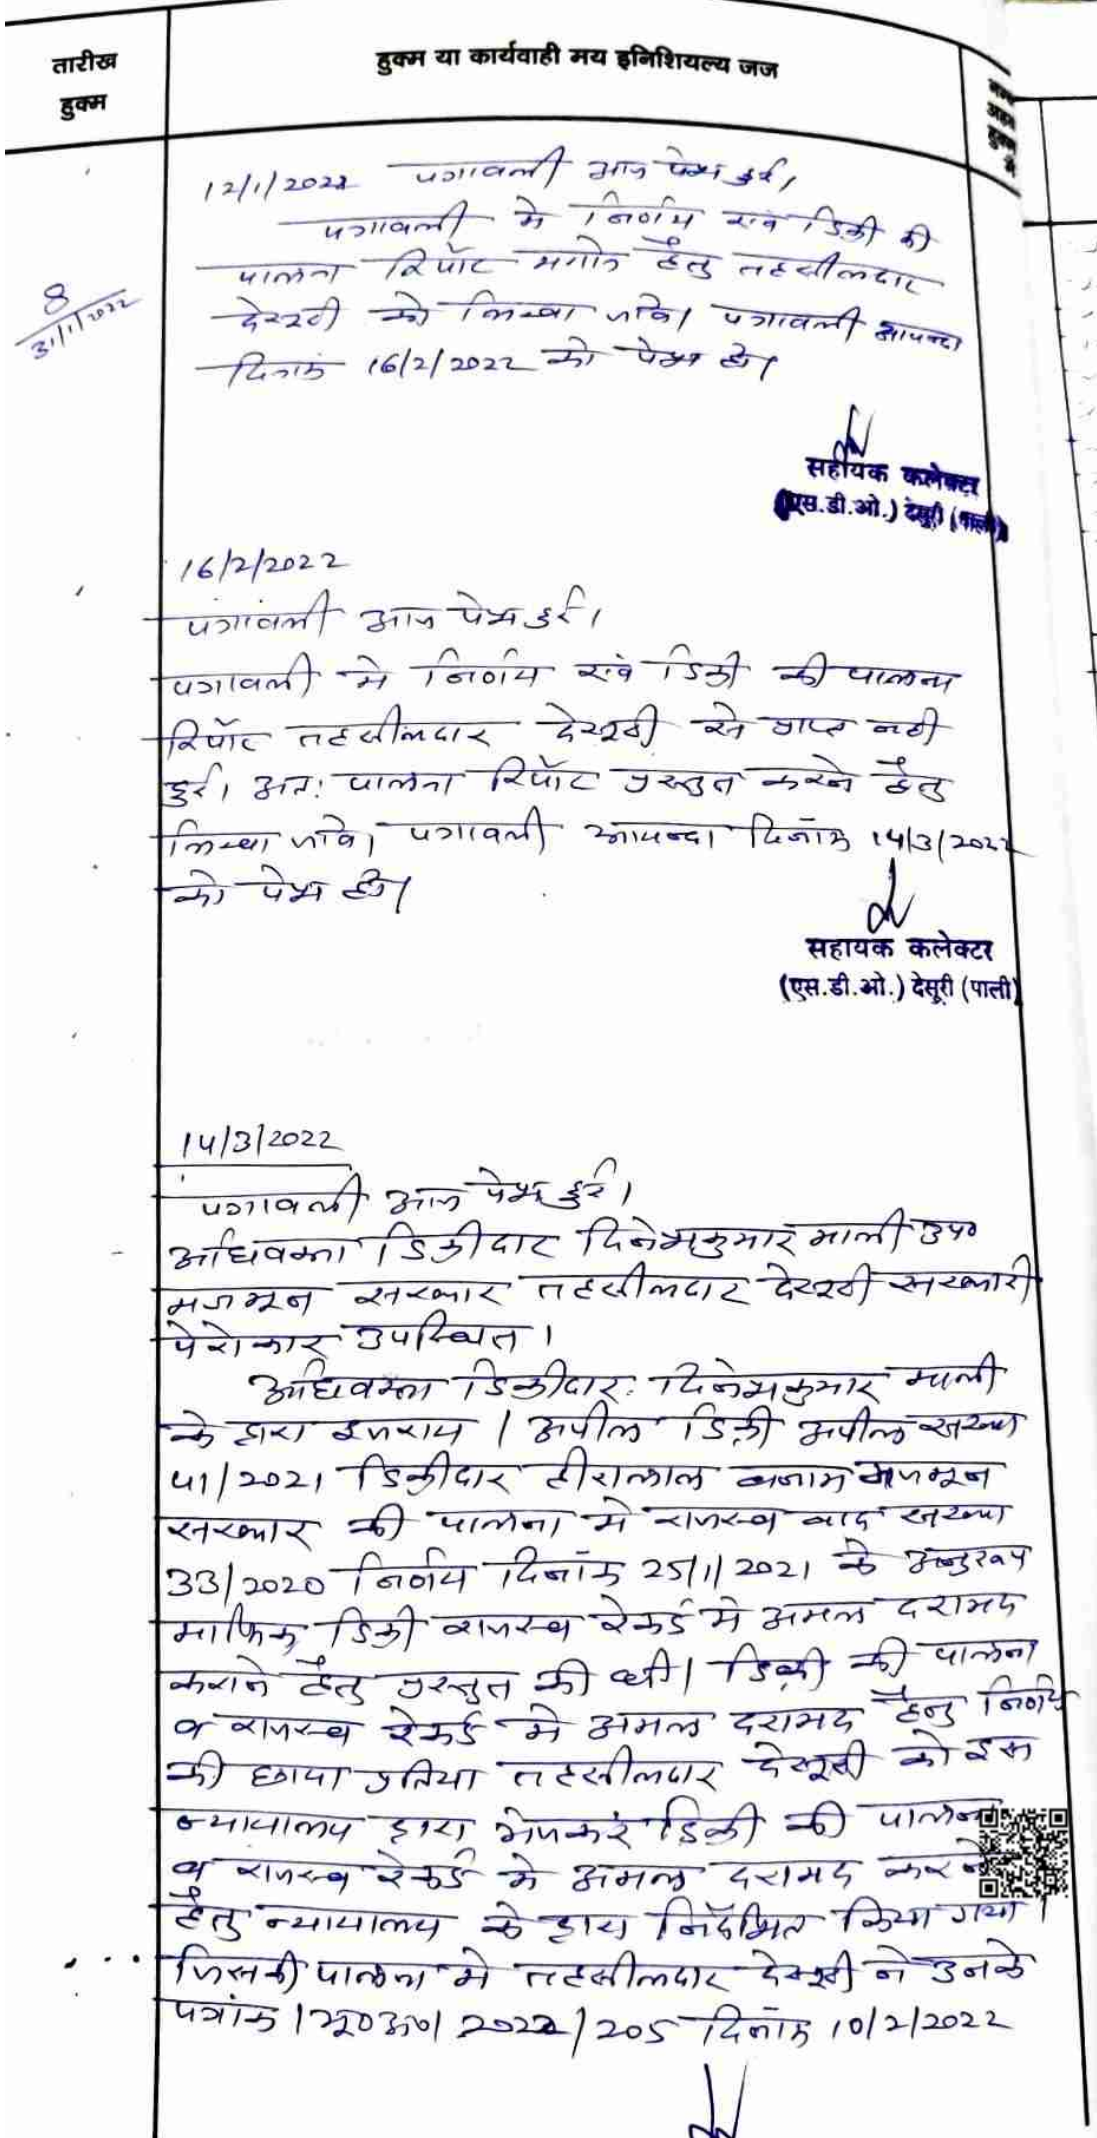 तारीख
हुक्म
हुक्म या कार्यवाही मय इनिशियल्य जज
8
31/1/2022
12/1/2022 पत्रावली आज पेश हुई।
पत्रावली मे निर्णय एवं डिक्री की
पालना रिपोर्ट मगाने हेतु तहसीलदार
देसूरी को लिखा जावे। पत्रावली आयन्दा
दिनांक 16/2/2022 को पेश हो।
सहायक कलेक्टर
(एस.डी.ओ.) देसूरी (पाली)
16/2/2022
पत्रावली आज पेश हुई।
पत्रावली मे निर्णय एवं डिक्री की पालना
रिपोर्ट तहसीलदार देसूरी से प्राप्त नही
हुई। अतः पालना रिपोर्ट प्रस्तुत करने हेतु
लिखा जावे। पत्रावली आयन्दा दिनांक 14/3/2022
को पेश हो।
सहायक कलेक्टर
(एस.डी.ओ.) देसूरी (पाली)
14/3/2022
पत्रावली आज पेश हुई।
अधिवक्ता डिक्रीदार दिनेशकुमार माली उप०
सरकार तहसीलदार देसूरी सरकारी
पेरोकार उपस्थित।
अधिवक्ता डिक्रीदार दिनेशकुमार माली
के द्वारा इजराय / अपील डिक्री अपील संख्या
41/2021 डिक्रीदार हीरालाल बनाम
सरकार की पालना मे राजस्व वाद संख्या
33/2020 निर्णय दिनांक 25/1/2021 के अनुरूप
माफिक डिक्री राजस्व रेकर्ड मे अमल दरामद
कराने हेतु प्रस्तुत की थी। डिक्री की पालना
व राजस्व रेकर्ड मे अमल दरामद हेतु निर्णय
की छाया प्रतिया तहसीलदार देसूरी को इस
न्यायालय द्वारा भेजकर डिक्री की पालना
व राजस्व रेकर्ड मे अमल दरामद करने
हेतु न्यायालय के द्वारा निर्देशित किया गया।
जिसकी पालना मे तहसीलदार देसूरी ने उनके
पत्रांक /भू०अ०/ 2022/205 दिनांक 10/2/2022